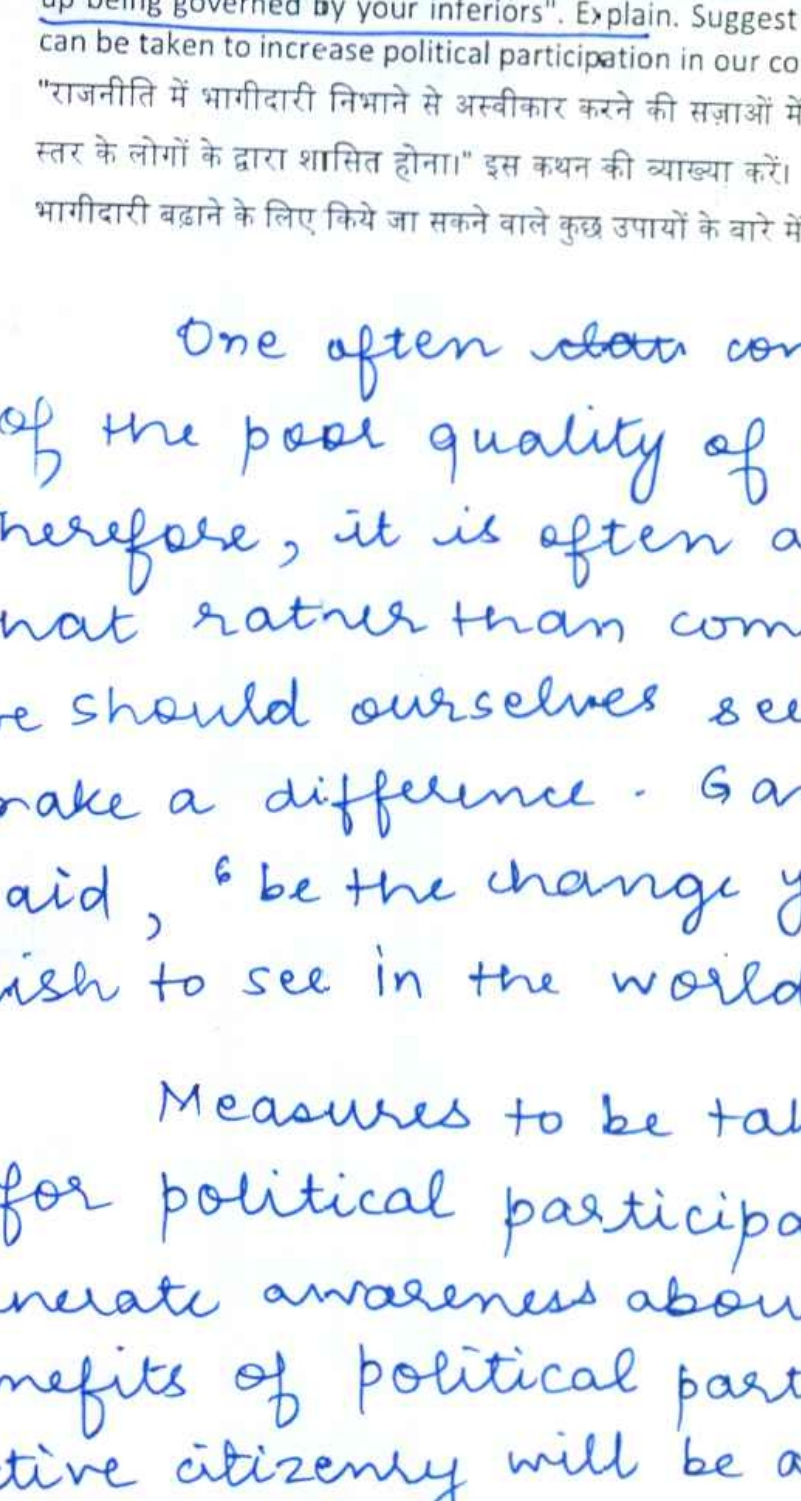 up being governed by your inferiors". Explain. Suggest
can be taken to increase political participation in our co
"राजनीति में भागीदारी निभाने से अस्वीकार करने की सज़ाओं में
स्तर के लोगों के द्वारा शासित होना।" इस कथन की व्याख्या करें।
भागीदारी बढ़ाने के लिए किये जा सकने वाले कुछ उपायों के बारे में
One often con
of the poor quality of
herefore, it is often a
hat rather than com
e should ourselves see
make a difference. Gan
aid, 'be the change y
ish to see in the world
Measures to be tak
for political participa
nerate awareness abou
nefits of political part
tive citizenry will be a